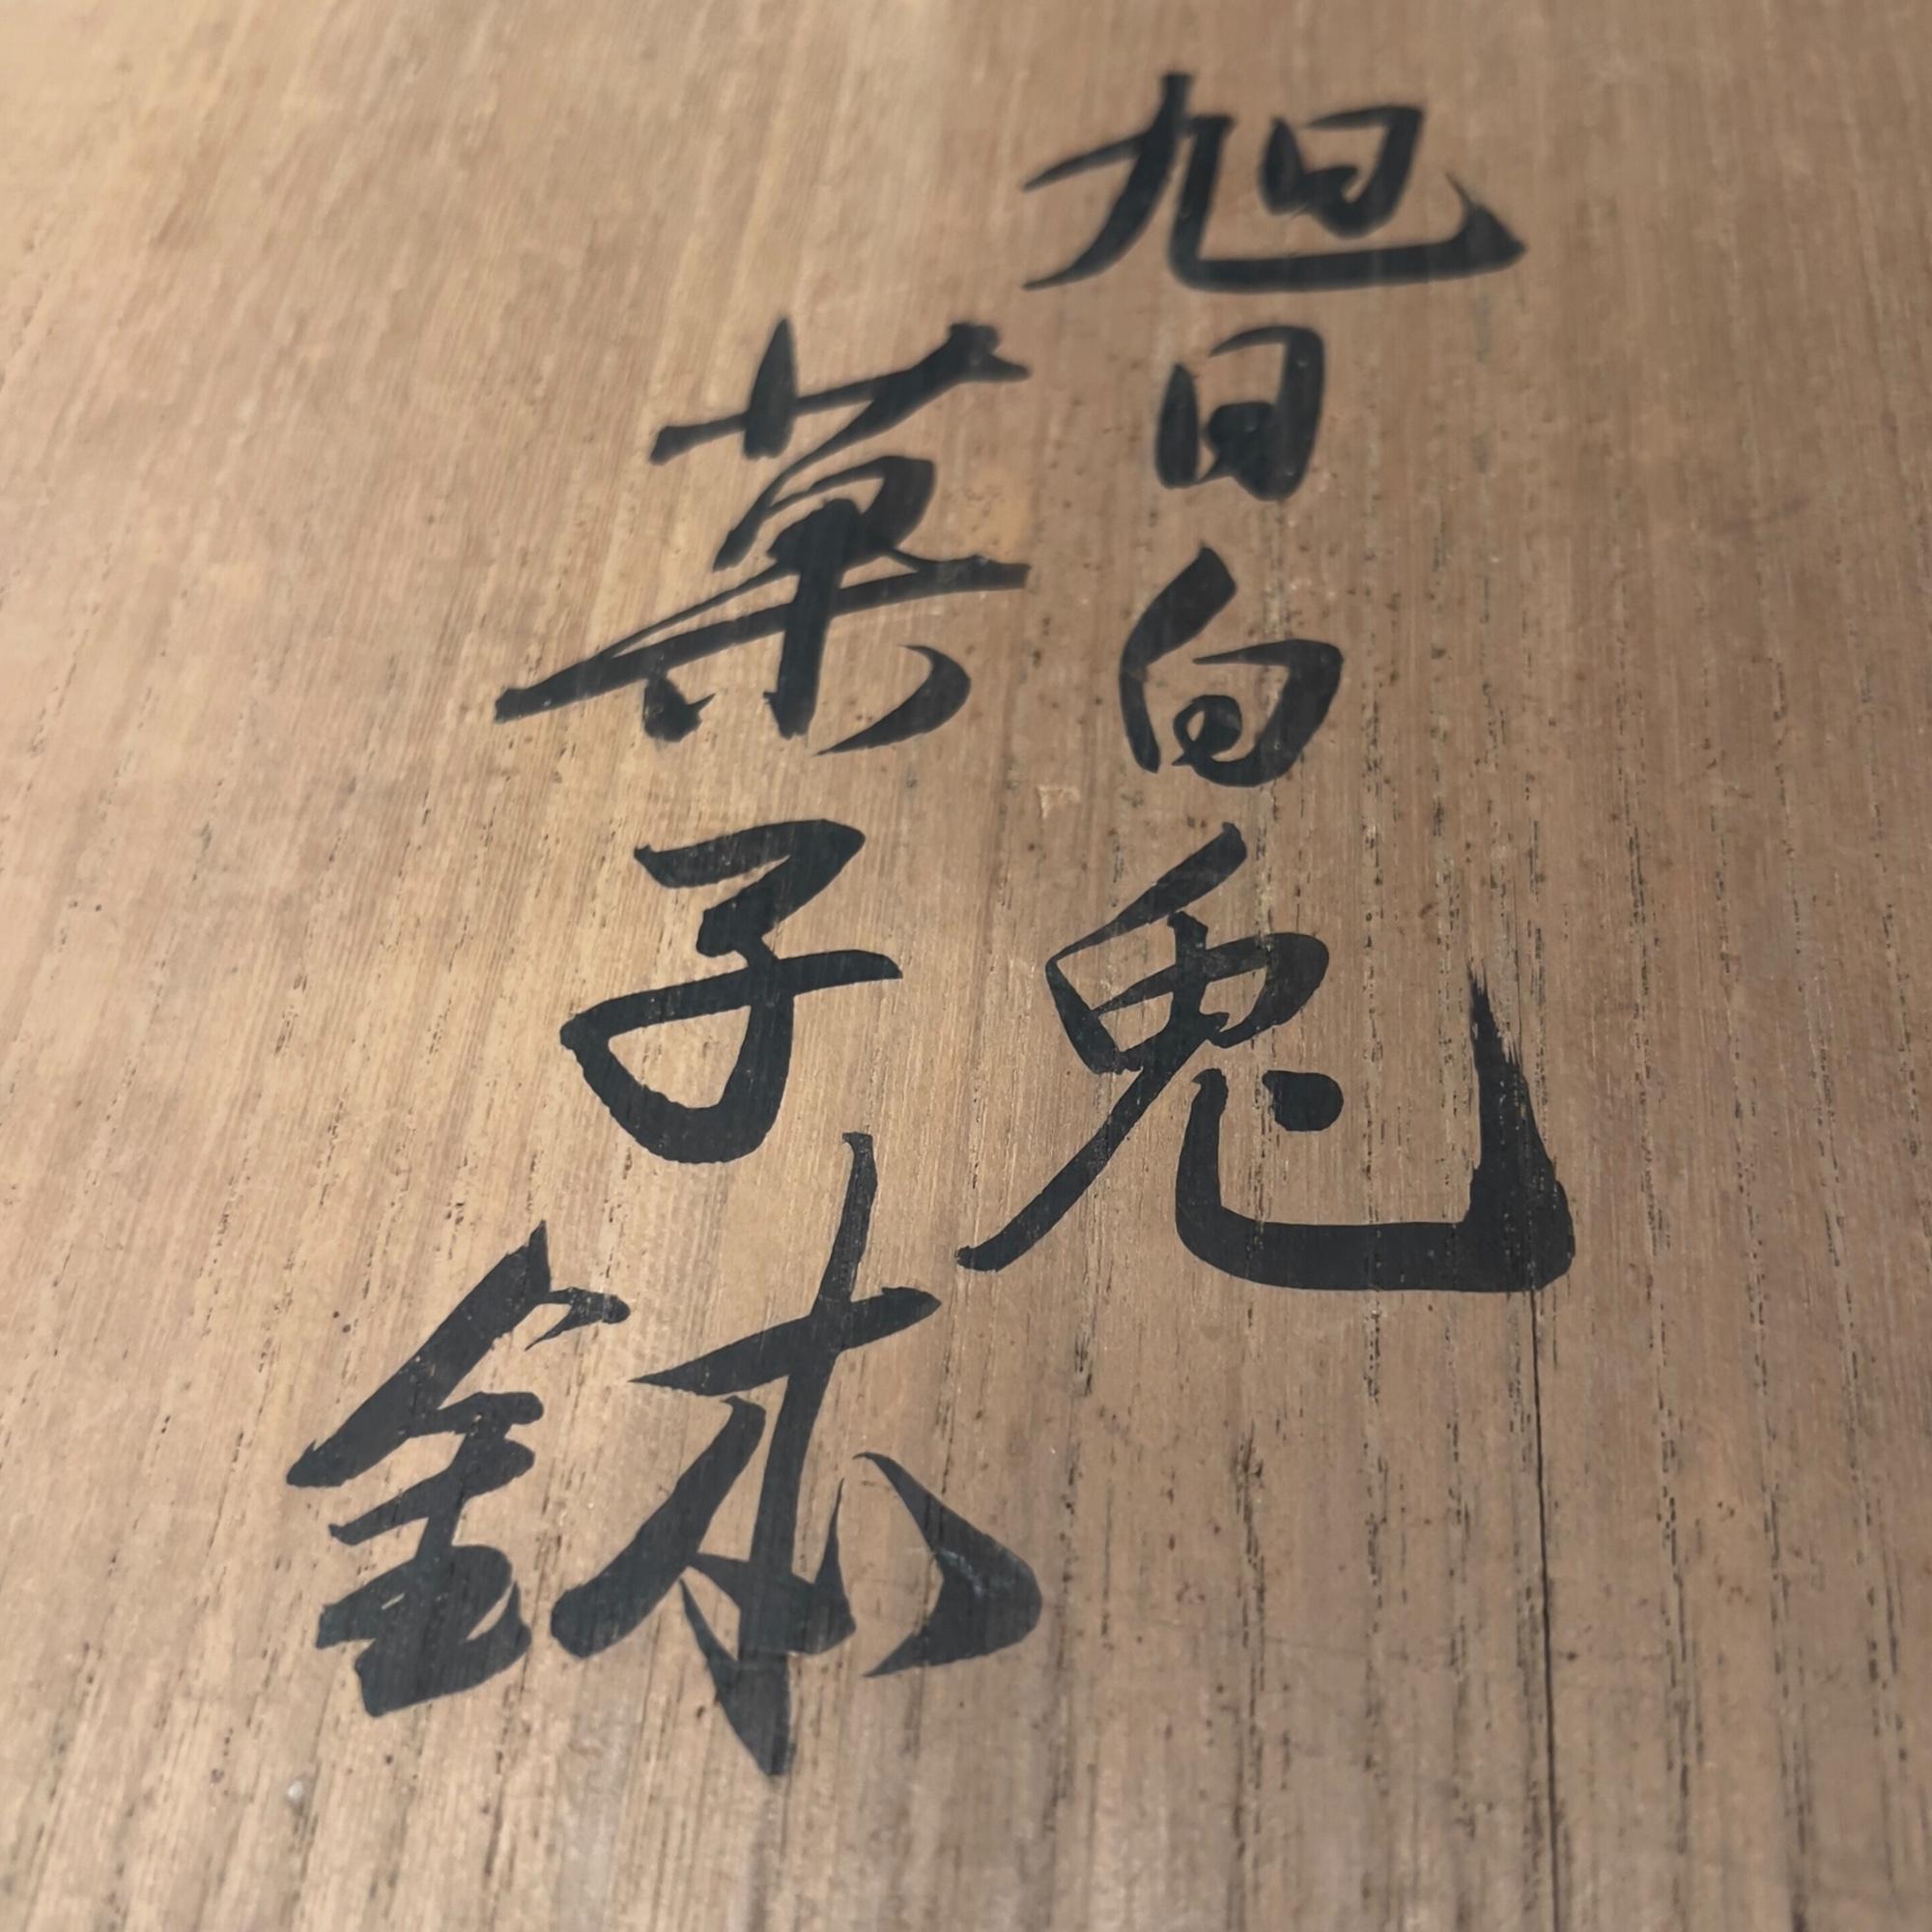 旭日白兎
菓子鉢